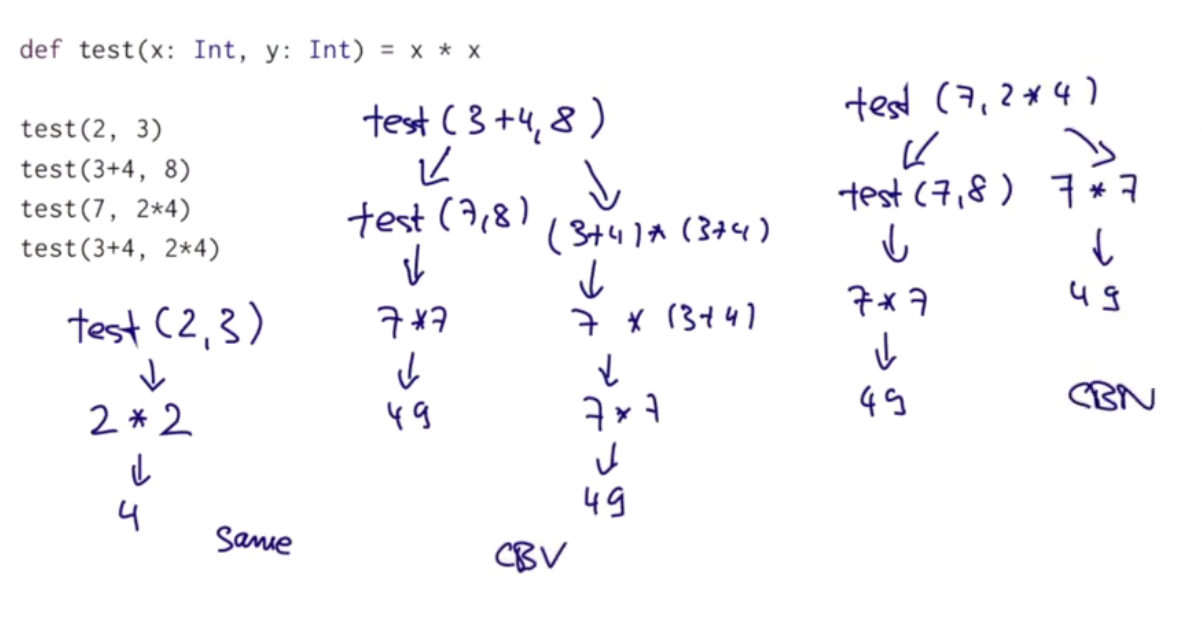 def test(x: Int, y: Int) = x * x
test(2, 3)
test(3+4, 8)
test(7, 2*4)
test(3+4, 2*4)
test (2,3)
↓
2 * 2
↓
4
Same
test (3+4, 8)
↙ ↘
test (7,8)
↓
7*7
↓
49
(3+4)*(3+4)
↓
7 * (3+4)
↓
7*7
↓
49
CBV
test (7, 2*4)
↙ ↘
test (7,8)
↓
7*7
↓
49
7*7
↓
49
CBN